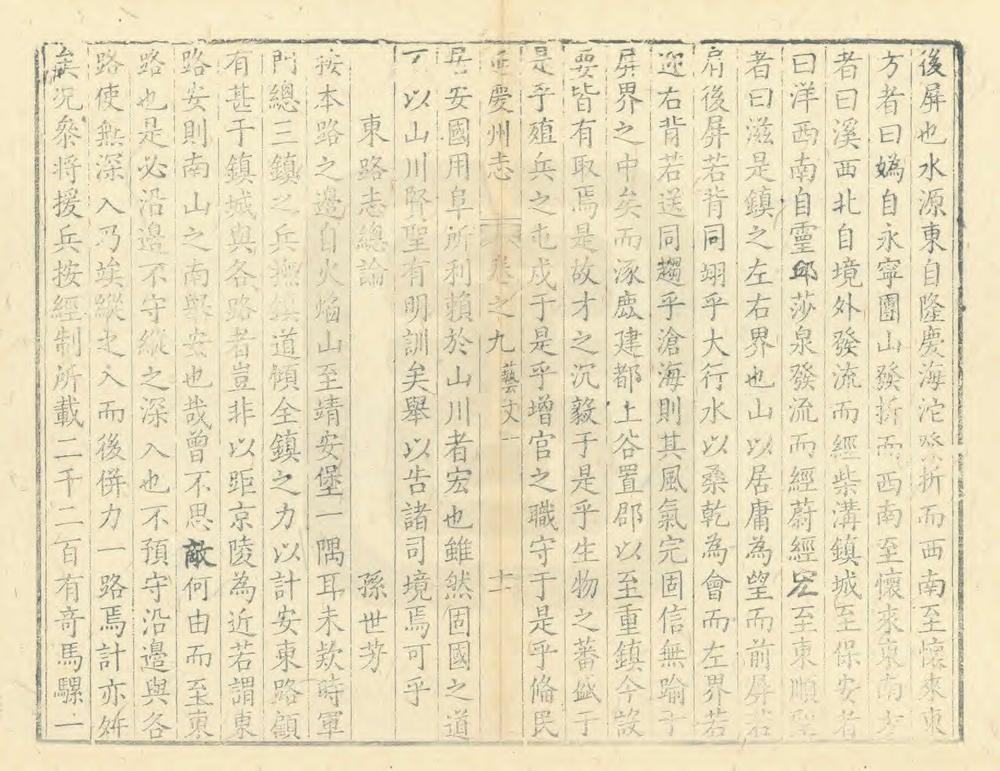 後屏也水源東自隆慶海沱發折而西南至懷來東
方者曰媯自永寧團山發折而西南至懷來東南
者曰溪西北自境外發流而經柴溝鎮城至保安者
曰洋西南自靈邱莎泉發流而經蔚經宏至東順聖
者曰滋是鎮之左右界也山以居庸為望而前屏若
肩後屏若背同翊乎大行水以桑乾為會而左界若
迎右背若送同趨乎滄海則其風氣完固信無踰于
屏界之中矣而涿鹿建都上谷置郡以至重鎮今設
要皆有取焉是故才之沉毅于是乎生物之蕃盛于
是乎殖兵之屯戍于是乎增官之職守于是乎脩民
延慶州志 卷之九 藝文 十一
居安國用阜所利賴於山川者宏也雖然固國之道
不以山川賢聖有明訓矣舉以告諸司境焉可乎
東路志總論 孫世芳
按本路之邊自火焰山至靖安堡一隅耳未款時軍
門總三鎮之兵撫鎮道傾全鎮之力以計安東路顧
有甚于鎮城與各路者豈非以距京陵為近若謂東
路安則南山之南舉安也哉曾不思敵何由而至東
路也是必沿邊不守縱之深入也不預守沿邊與各
路使無深入乃竢縱之入而後併力一路焉計亦舛
矣況叅將援兵按經制所載二千二百有奇馬騾一